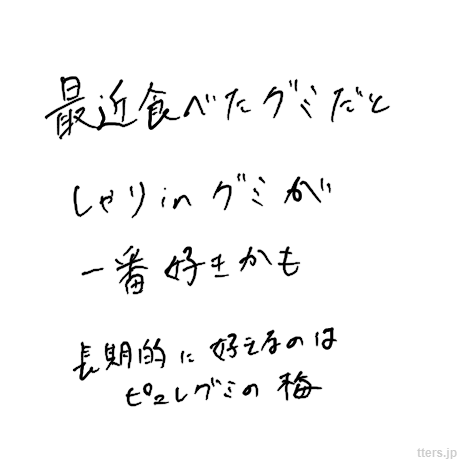 最近食べたグミだと
しゃりinグミが
一番好きかも
長期的に好きなのは
ピュレグミの梅
tters.jp